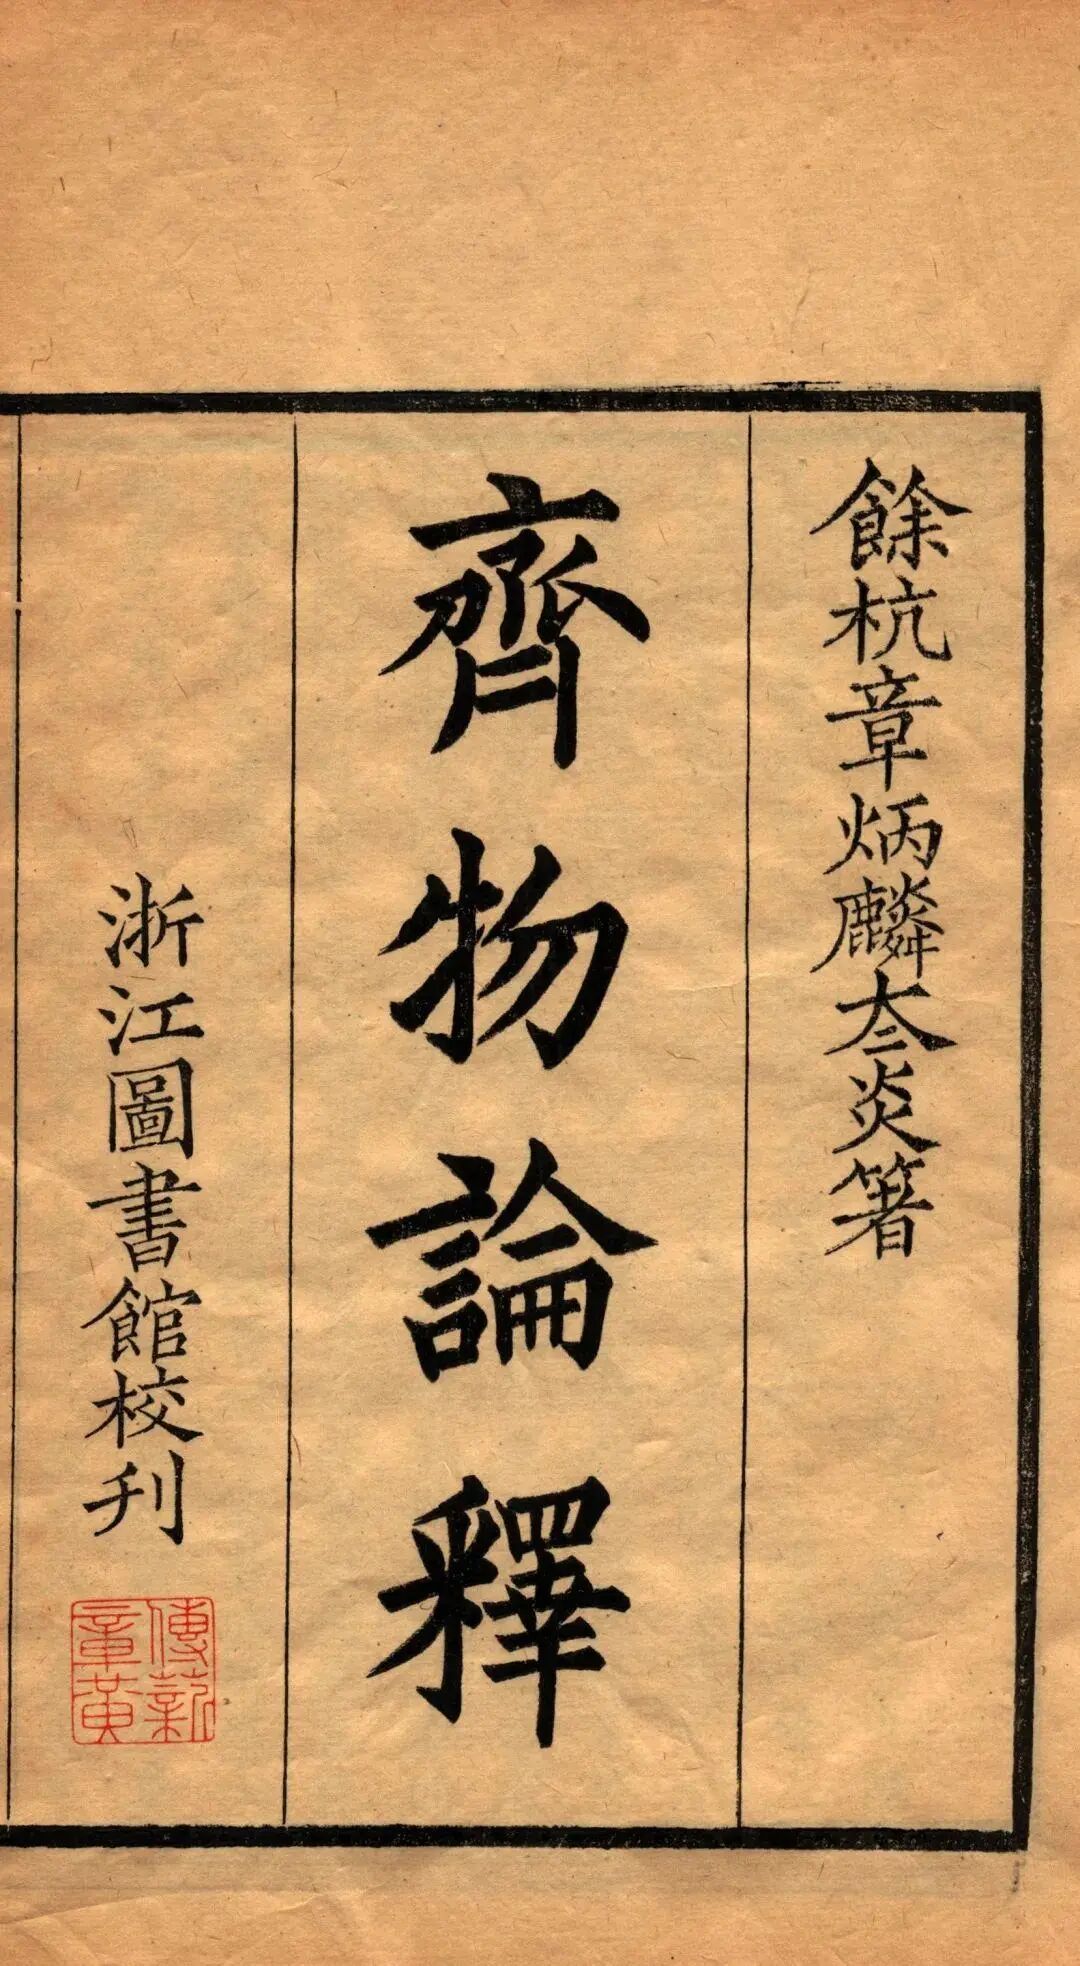 餘杭章炳麟太炎箸
齊物論釋
浙江圖書館校刊
傳薪
章黃